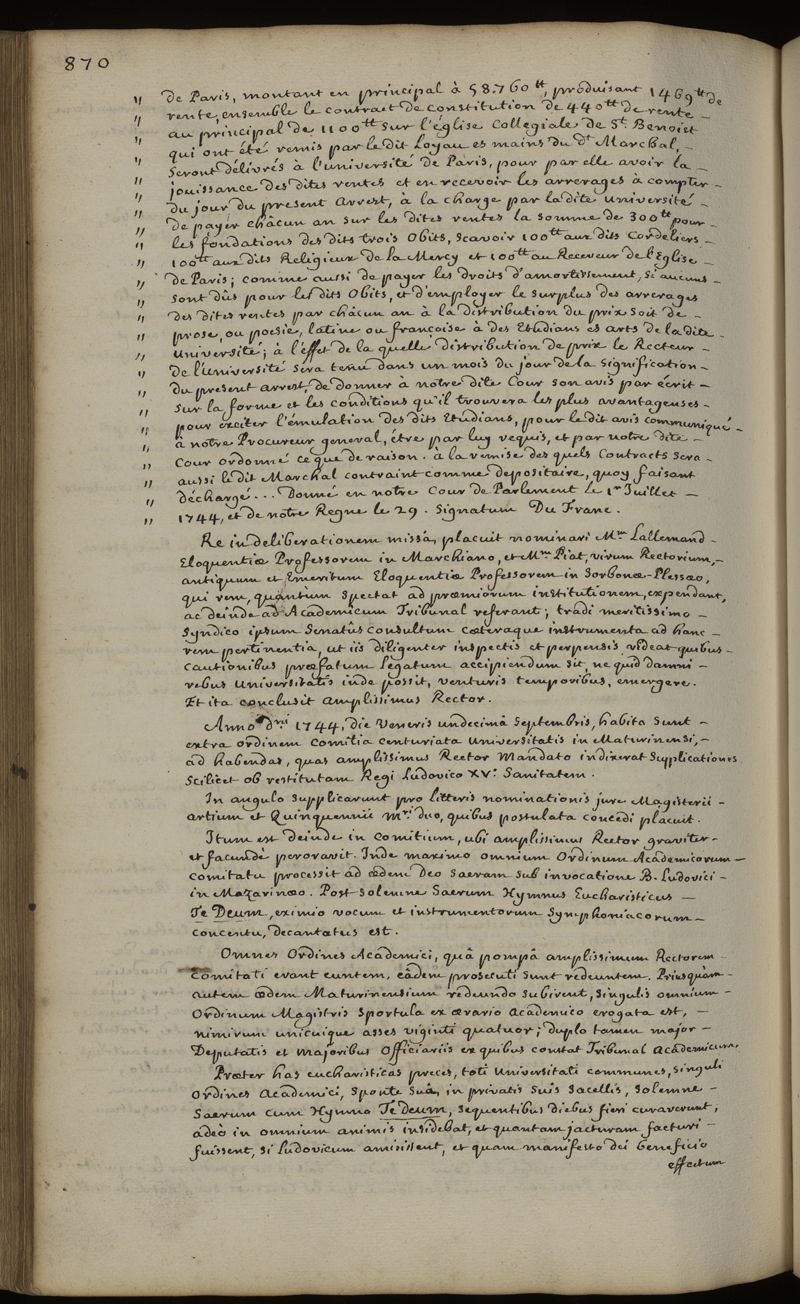 870
" de Paris, montant en principal à 58760 tt, produisant 1469 tt de
" rente, ensemble le contract de constitution de 440 tt de rente –
" au principal de 1100 tt sur l'église Collegiale de St. Benoict
" qui ont été remis par le dit Loyau es mains du dt Marchal, –
" seront délivrés à l'université de Paris, pour par elle avoir la –
" jouissance des dites rentes et en recevoir les arrerages à compter –
" du jour du present Arrest, à la charge par la dite université –
" de payer châcun an sur les dites rentes la somme de 300 tt pour –
" les fondations des dits trois Obits, scavoir 100 tt aux dits Cordeliers –
" 100 tt aux dits Religieux de la Mercy et 100 tt au Receveur de l'Eglise –
" de Paris; comme aussi de payer les droits d'amortissement, si aucuns –
" sont dûs pour les dits Obits, et d'employer le surplus des arrerages
" des dites rentes par châcun an à la distribution du prix soit de –
" prose, ou poesie, latine ou françoise à des Etudians es arts de la dite –
" université; à l'effet de la quelle distribution de prix le Recteur –
" de l'université sera tenu dans un mois du jour de la signification –
" du present arrest, de donner à notre dite Cour son avis par écrit –
" sur la forme et les conditions qu'il trouvera les plus avantageuses –
" pour exciter l'émulation des dits Etudians, pour le dit avis communiqué –
" à notre Procureur general, être par luy requis, et par notre dite –
" Cour ordonné ce que de raison. à la remise des quels Contracts sera –
" aussi le dit Marchal contraint comme depositaire, quoy faisant
" déchargé... Donné en notre Cour de Parlement le 1er Juillet –
" 1744, et de notre Regne le 29. Signatum Du Franc.
Re in deliberationem missâ, placuit nominari Mum Lallemand –
Eloquentiæ Professorem in Marchiano, et Mum Piat, virum Rectorium, –
antiquum et Emeritum Eloquentiæ Professorem in Sorbonæ-Plessæo,
qui rem, quantùm spectat ad præmiorum institutionem, expendant,
ac deinde ad Academicum Tribunal referant; tradi meritissimo –
Syndico ipsum Senatûs consultum cæteraque instrumenta ad hanc –
rem pertinentia, ut iis diligenter inspectis et perpensis videat quibus –
cautionibus præfatum legatum accipiendum sit, ne quid damni –
rebus universitatis inde possit, venturis temporibus, emergere.
Et ita conclusit amplissimus Rector.
Anno dni 1744, die Veneris undecimâ Septembris, habita sunt –
extra ordinem comitia centuriata universitatis in Maturinensi, –
ad habendas, quas amplissimus Rector Mandato indixerat supplicationes
scilicet ob restitutam Regi Ludovico XV. Sanitatem.
In angulo supplicarunt pro litteris nominationis jure Magisterii –
artium et Quinquennii Mri. duo, quibus postulata concedi placuit.
Itum est deinde in comitium, ubi amplissimus Rector graviter –
et facundè peroravit. Inde maximo omnium Ordinum Academicorum –
comitatu processit ad ædem deo sacram sub invocatione B. Ludovici –
in Mazarinæo. Post solemne sacrum Hymnus Eucharisticus –
Te Deum, eximio vocum et instrumentorum symphoniacorum –
concentu, decantatus est.
Omnes Ordines Academici, quâ pompâ amplissimum Rectorem
comitati erant euntem, eâdem prosecuti sunt redeuntem. Priusquàm –
autem ædem Maturinensium redeundo subirent, singulis omnium –
Ordinum Magistris sportula ex ærario academico erogata est, –
nimirum unicuique asses viginti quatuor; duplo tamen major –
Deputatis et Majoribus Officiariis ex quibus constat Tribunal academicum.
Præter has eucharisticas preces, toti universitati communes, singuli
ordines academici, sponte suâ, in privatis suis sacellis, solemne –
sacrum cum Hymno Te Deum, sequentibus diebus fieri curaverunt;
adeò in omnium animis insidebat, et quantam jacturam facturi –
fuissent, si Ludovicum amisissent, et quam manifesto dei beneficio
effectum